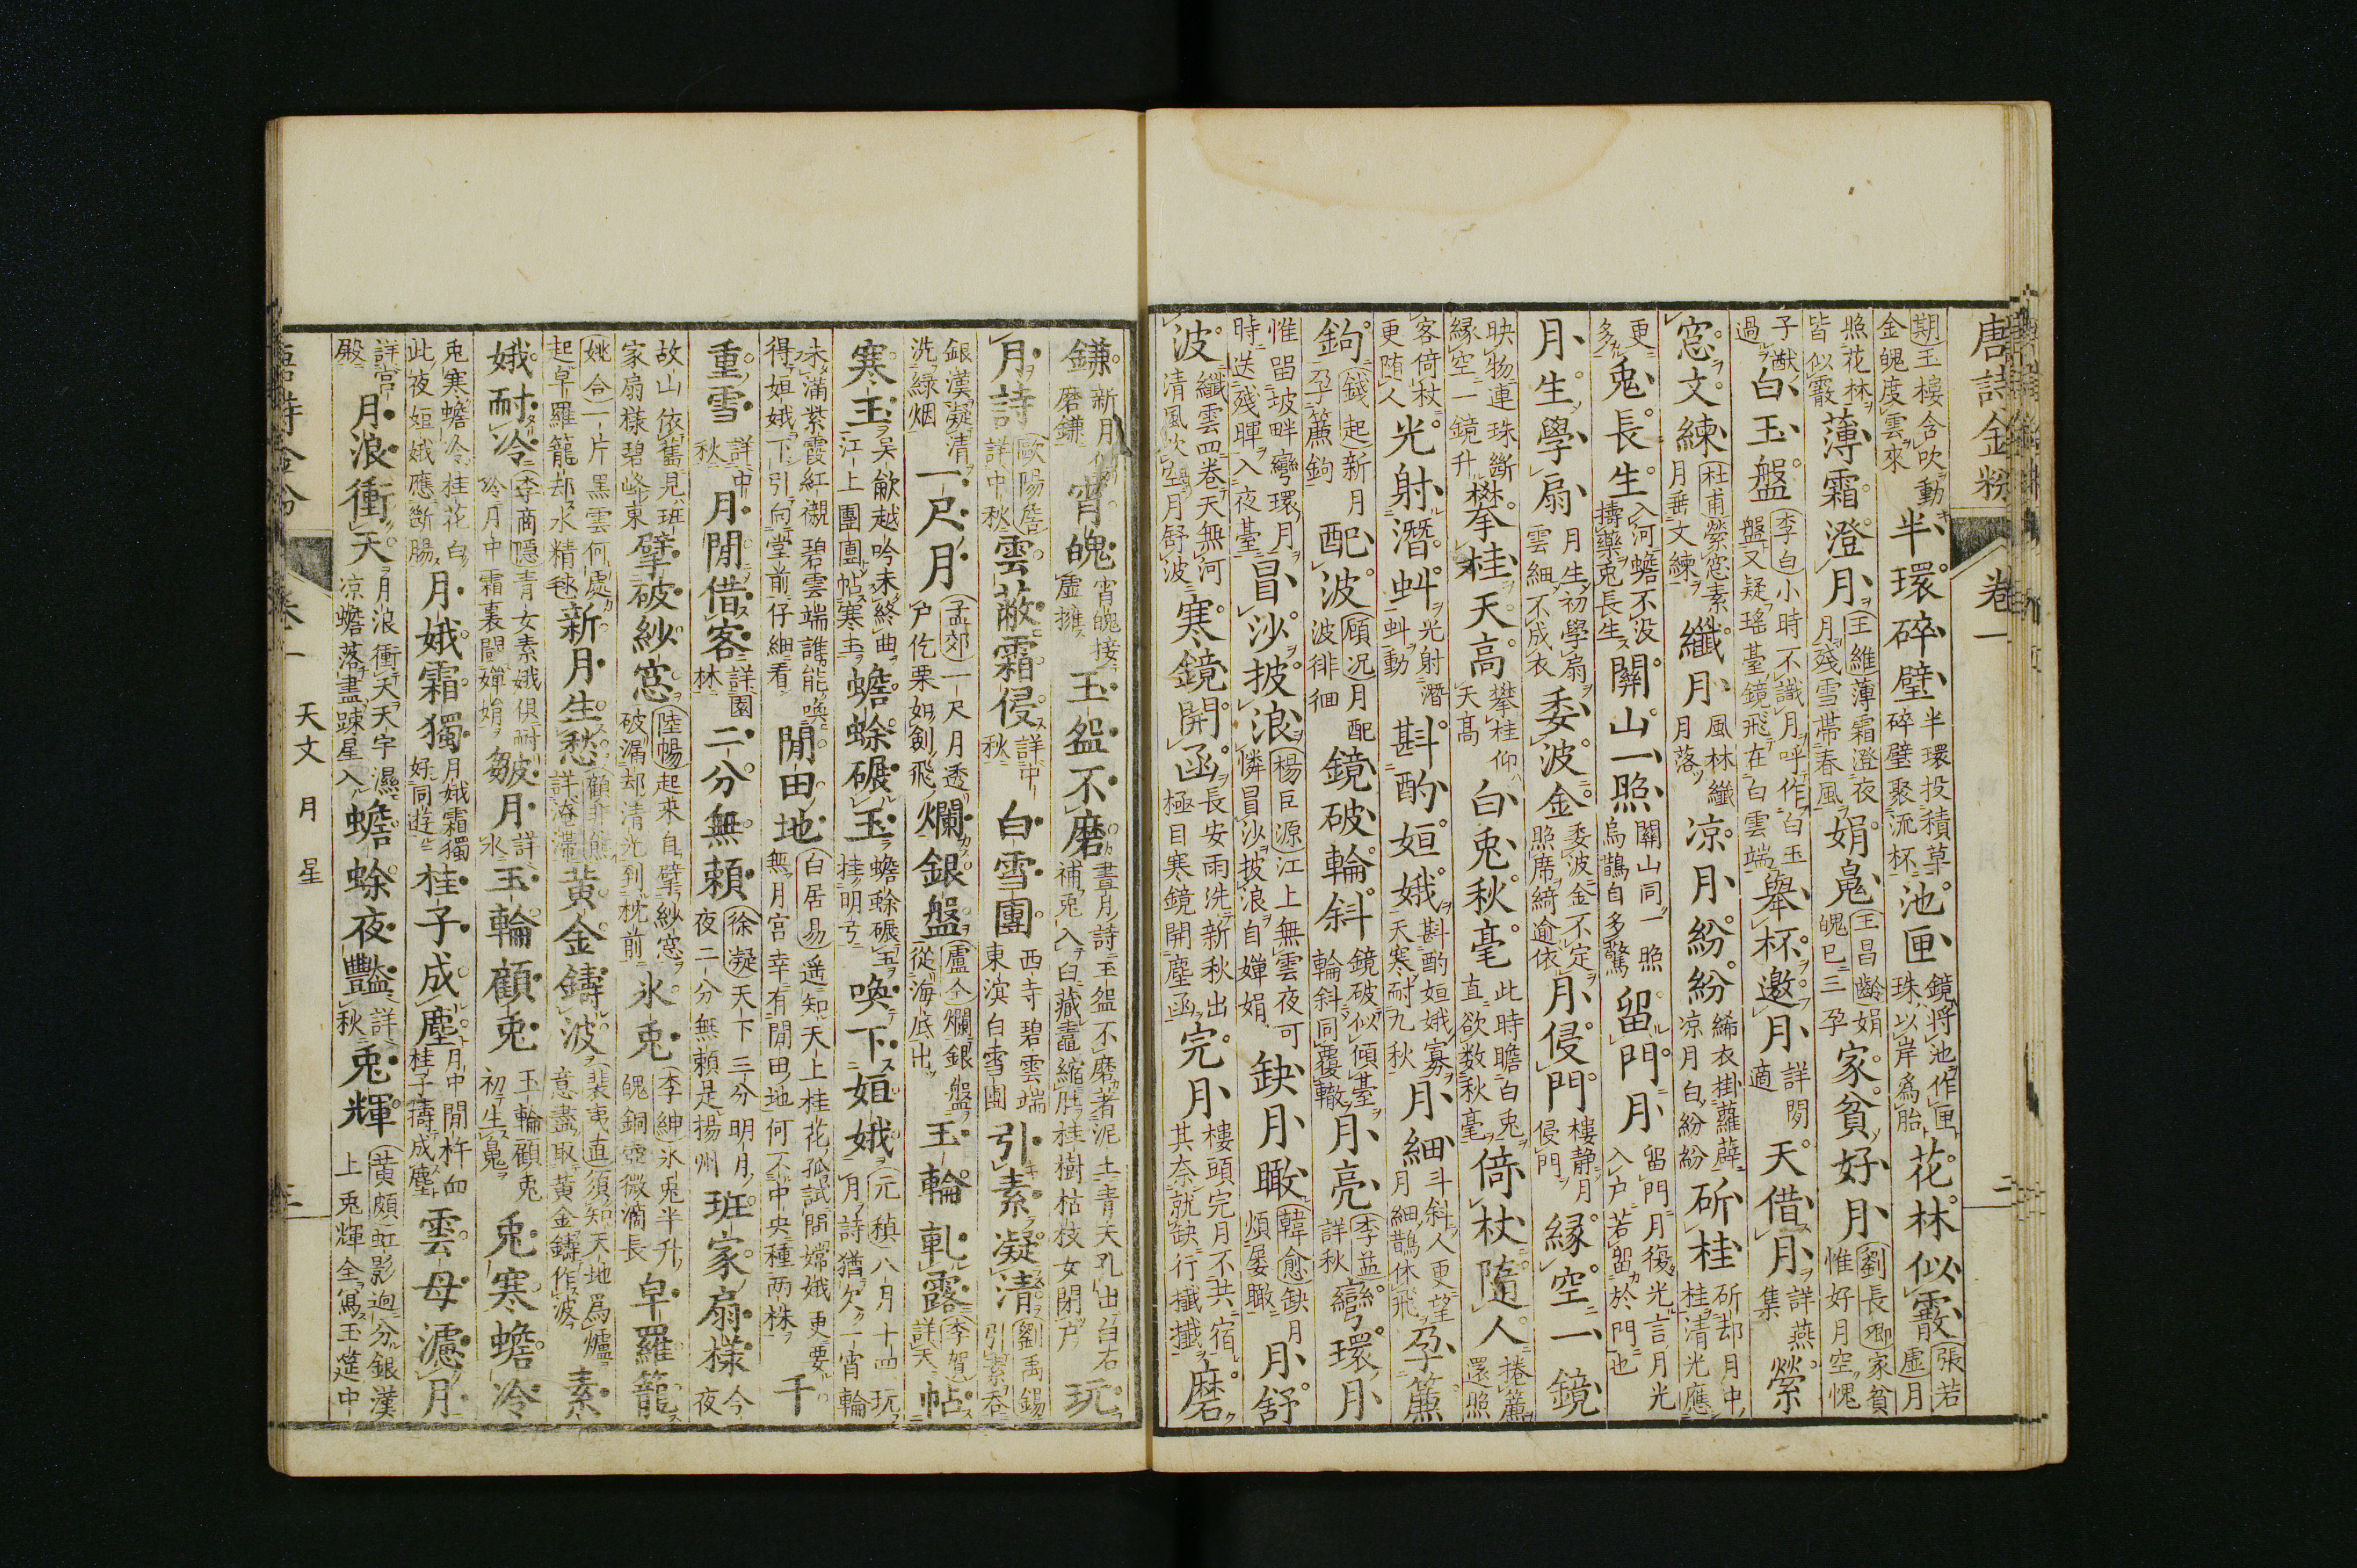 唐詩金粉　卷一　二
期玉樓含吹動金魄度雲來　半環碎璧　半環投積草碎璧聚流杯　池匣　鏡將池作匣珠以岸為胎　花林似霰　張若虛月
照花林皆似霰　薄霜澄月　王維薄霜澄夜月殘雪帶春風　娟魄　王昌齡娟魄已三孕　家貧好月　劉長卿家貧惟好月空愧
子猷過　白玉盤　李白小時不識月呼作白玉盤又疑瑤臺鏡飛在白雲端　舉杯邀月　詳閒適　天借月　詳燕集　縈
窓文練　杜甫縈窓素月垂文練　纖月　風林纖月落　凉月紛紛　絺衣掛蘿薜凉月白紛紛　斫桂　斫却月中桂清光應
更多　兎長生　入河蟾不没擣藥兎長生　關山一照　關山同一照烏鵲自多驚　留門月　留門月復光言月光入户若留於門也
月生學扇　月生初學扇雲細不成衣　委波金　委波金不定照席綺逾依　月侵門　樓静月侵門　緣空一鏡
映物連珠斷緣空一鏡升　攀桂天高　攀桂仰天高　白兎秋毫　此時瞻白兎直欲数秋毫　倚杖隨人　捲簾還照
客倚杖更随人　光射潛虯　光射潛虯動　斟酌姮娥　斟酌姮娥寡天寒耐九秋　月細　斗斜人更望月細鵲休飛　孕簾
鉤　錢起新月孕簾鉤　配波　顧况月配波徘徊　鏡破輪斜　鏡破似傾臺輪斜同覆轍　月亮　李益詳秋　彎環月
惟留坡畔彎環月時送殘暉入夜臺　冒沙披浪　楊巨源江上無雲夜可憐冒沙披浪自嬋娟　缺月瞰　韓愈缺月煩屡瞰　月舒
波　纖雲四卷天無河清風吹空月舒波　寒鏡開函　長安雨洗新秋出極目寒鏡開塵函　完月　樓頭完月不共宿其奈就缺行攕攕　磨
鎌　新月似磨鎌　宵魄　宵魄接虛擁　玉盌不磨　晝月詩玉盌不磨著泥土青天孔出白石補兎入臼藏蟇縮肚桂樹枯枝女閉户　玩
月詩　歐陽詹詳中秋　雲蔽霜侵　詳中秋　白雪團　西寺碧雲端東溟白雪團　引素凝清　劉禹錫引素吞
銀漢凝清洗綠烟　一尺月　孟郊一尺月透户仡栗如劍飛　爛銀盤　盧仝爛銀盤從海底出　玉輪軋露　李賀詳天　帖
寒玉　吴歈越吟未終曲江上團團帖寒玉　蟾蜍碾玉　蟾蜍碾玉挂明弓　喚下姮娥　元稹八月十四玩月詩猶欠一宵輪
未滿紫霞紅襯碧雲端誰能喚得姮娥下引向堂前仔細看　閒田地　白居易遥知天上桂花孤試問嫦娥更要無月宮幸有閒田地何不中央種两株　千
重雪　詳中秋　月閒借客　詳園林　二分無賴　徐凝天下三分明月夜二分無賴是揚州　班家扇樣　今夜
故山依舊見班家扇樣碧峰東　擘破紗窓　陸暢起来自擘紗窓破漏却清光到枕前　氷兎　李紳氷兎半升魄銅壺微滴長　皁羅籠
姚合一片黑雲何處起皁羅籠却水精毬　新月生愁　顧非熊詳淹滯　黄金鑄波　裴夷直須知天地為爐意盡取黄金鑄作波　素
娥耐冷　李商隱青女素娥俱耐冷月中霜裏鬬嬋娟　皺月　詳水　玉輪顧兎　玉輪顧兎初生魄　兎寒蟾冷
兎寒蟾冷桂花白此夜姮娥應斷腸　月娥霜獨　月娥霜獨好同遊　桂子成塵　月中閒杵臼桂子擣成塵　雲母濾月
詳宮殿　月浪衝天　月浪衝天天宇濕凉蟾落盡踈星入　蟾蜍夜豔　詳秋　兎輝　黄頗虹影迥分銀漢上兎輝全寫玉筵中
唐詩金粉　卷一　天文　月　星　三